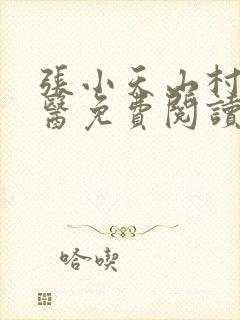 張小天山村
醫免費閱讀
哈喫